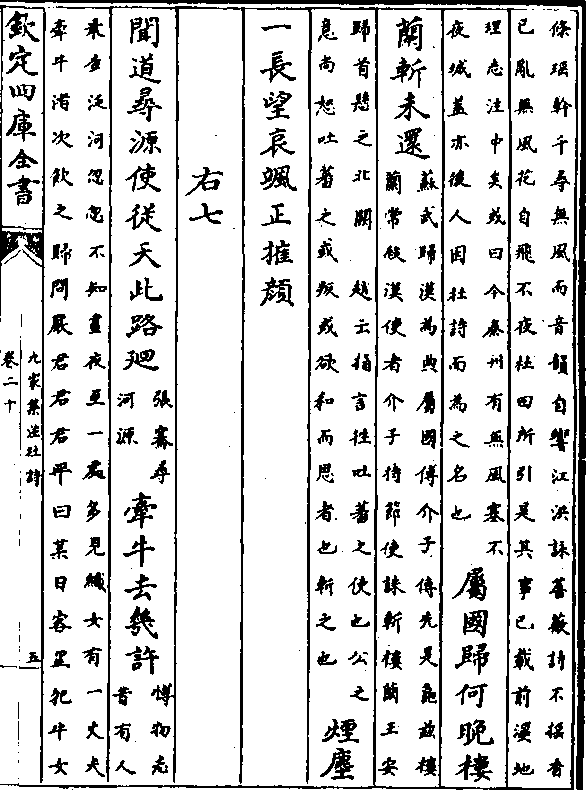 條瑶幹千尋無風而音韻自響江洪詠薔薇詩不揺香
已亂無風花自飛不夜杜田所引是其事已載前漢地
理志注中矣或曰今秦州有無風塞不
夜城蓋亦後人因杜詩而為之名也
屬國歸何晚樓
蘭斬未還
蘇武歸漢為典屬國傅介子傳先是龜兹樓
蘭常殺漢使者介子持節使誅斬樓蘭王安
歸首懸之北闕 趙云指言往吐蕃之使也公之
意尚恕吐蕃之或叛或欲和而思者也斬之也
煙塵
一長望衰颯正摧顔
右七
聞道尋源使從天此路迴
張騫尋
河源
牽牛去幾許
博物志
昔有人
乘查泛河忽忽不知晝夜至一處多見織女有一丈夫
牽牛渚次飲之歸問嚴君君平曰某日客星犯牛女
欽定四庫全書
九家集注杜詩
卷二十
五